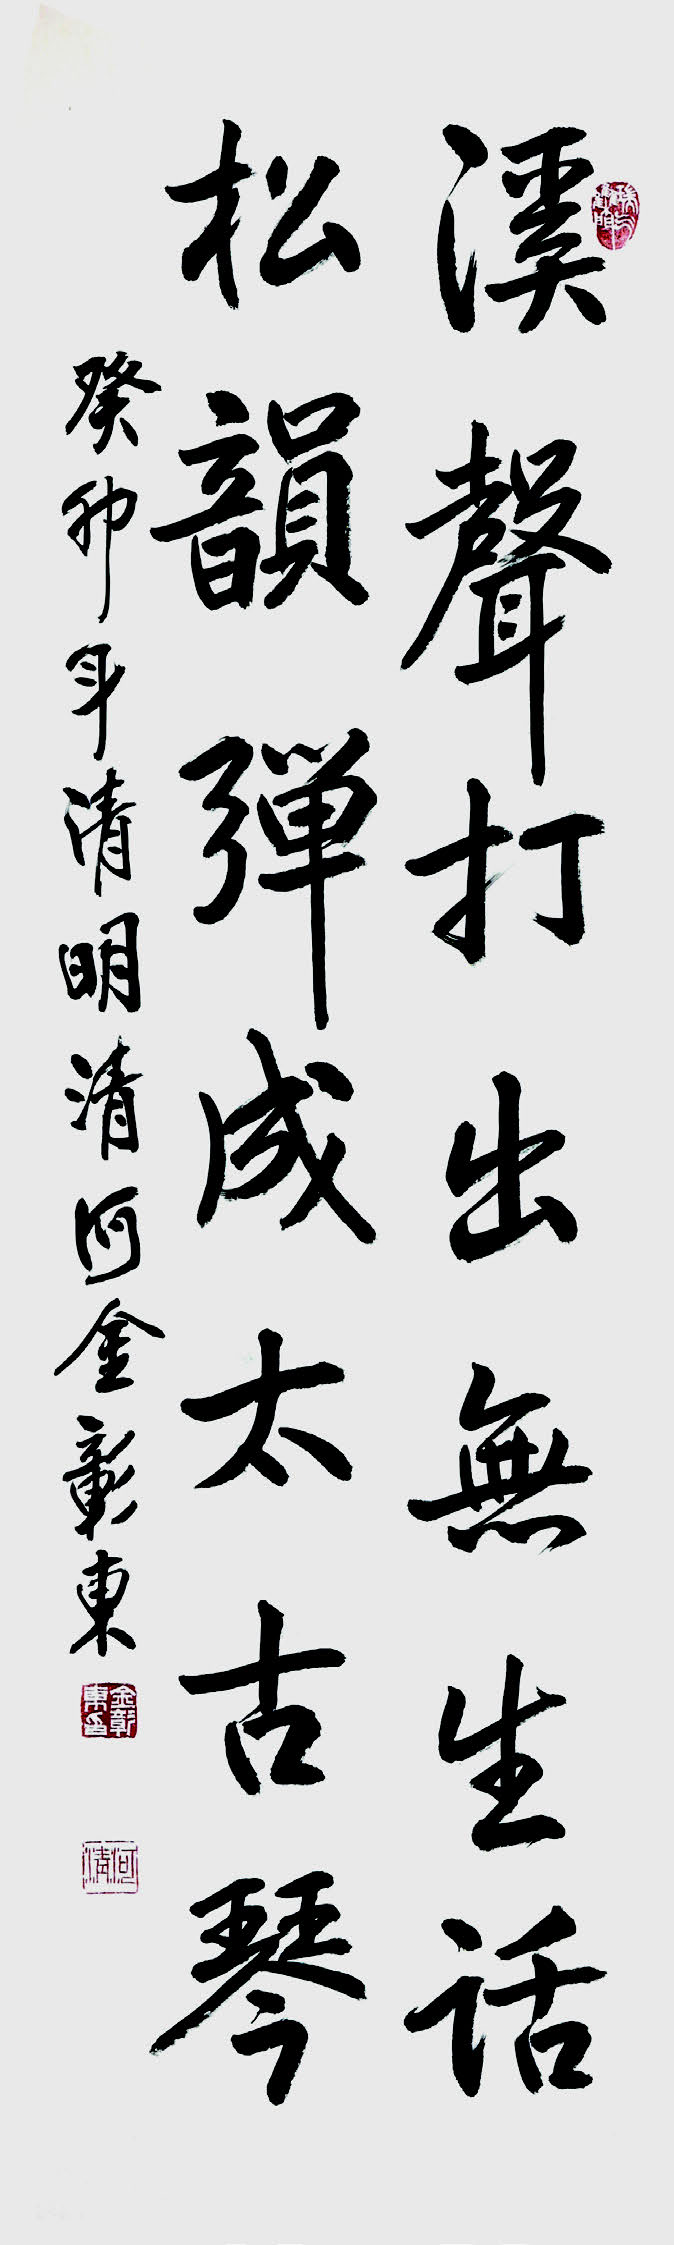 溪聲打出無生話
松韻弾成太古琴
癸卯年清明清河金彰東
金彰東印
清河